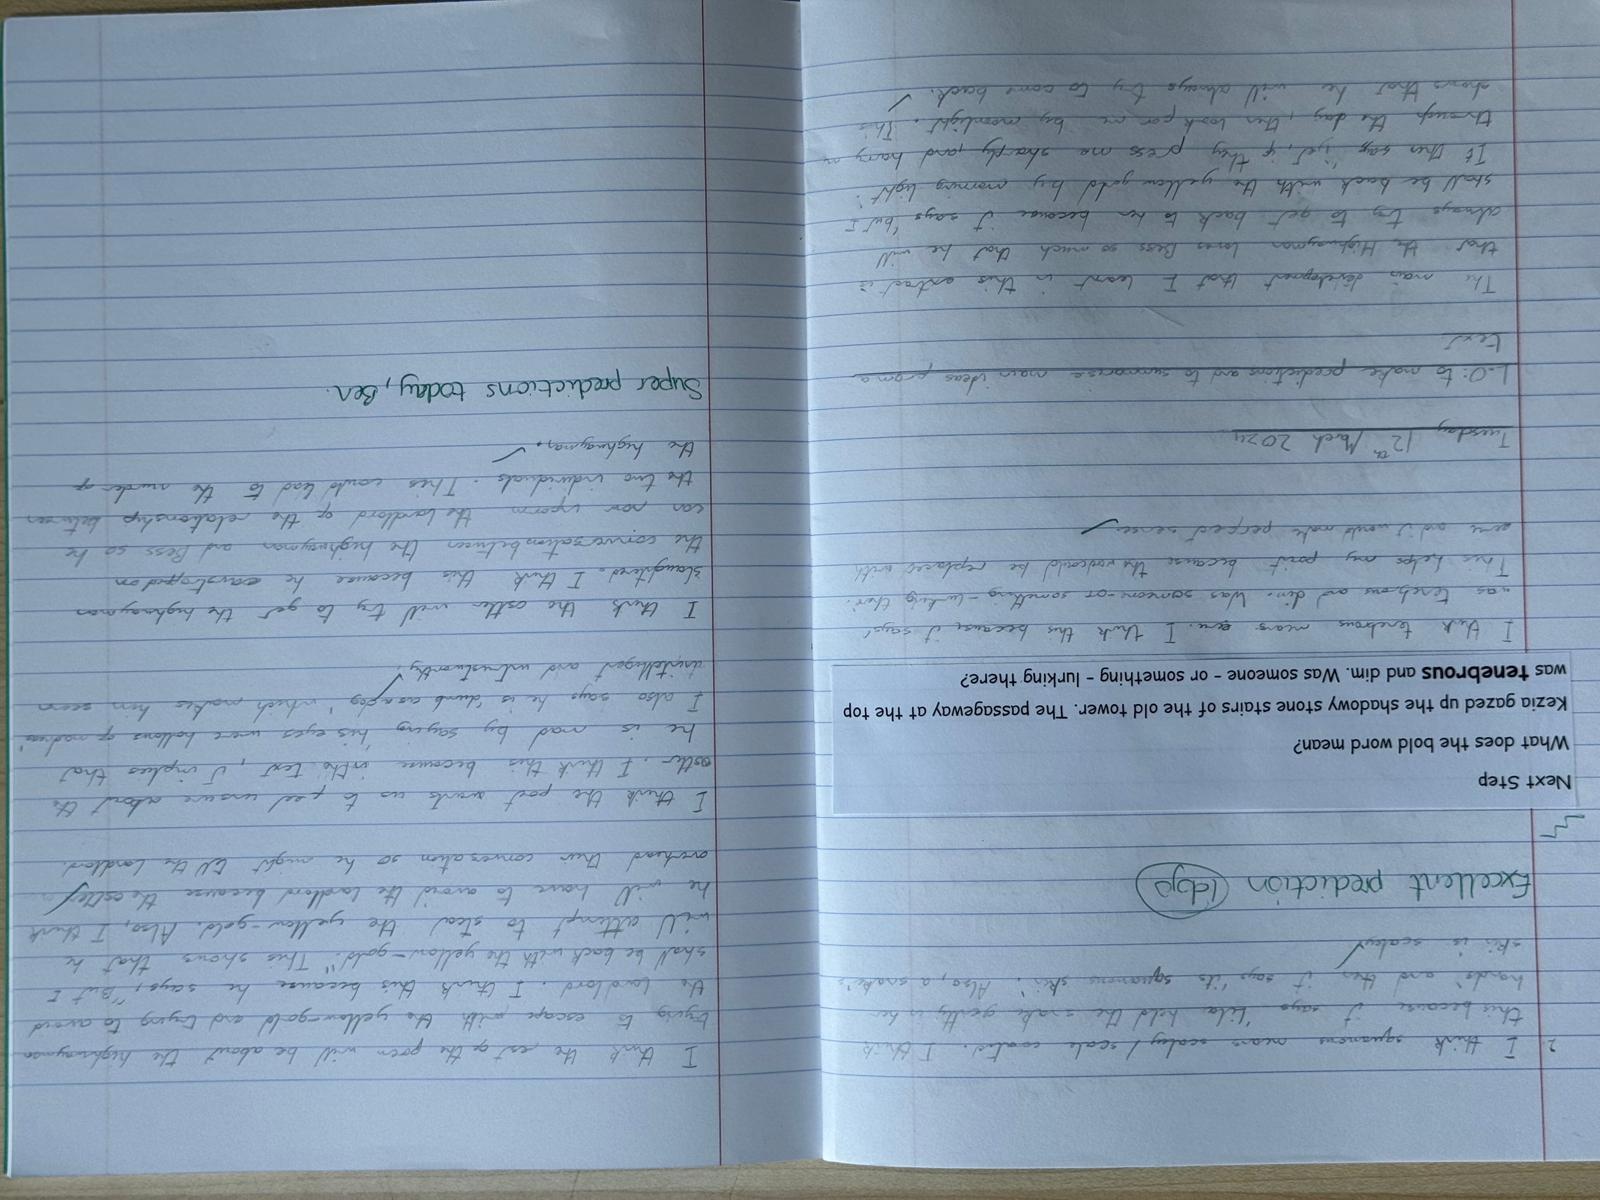 2. I think squamous means scaley / scale coated. I think
this because it says 'Lila held the snake gently in her
hands' and then it says 'its squamous skin'. Also, a snake's
skin is scaley
Excellent prediction
Next Step
What does the bold word mean?
Kezia gazed up the shadowy stone stairs of the old tower. The passageway at the top
was tenebrous and dim. Was someone - or something - lurking there?
I think tenebrous means eerie. I think this because it says'
was tenebrous and dim. Was someone-or-something-lurking there'.
This helps my point because the word could be replaced with
eerie and it would make perfect sense.
Tuesday 12th March 2024
L.O: to make predictions and to summarise main ideas from a
text
The main development that I learnt in this extract is
that the Highwayman loves Bess so much that he will
always try to get back to her because it says "but I
shall be back with the yellow gold by morning light'.
It then says, 'yet, if they press me sharply, and harry me
through the day, then look for me by moonlight'. This
shows that he will always try to come back.
I think the rest of the poem will be about the highwayman
trying to escape with the yellow-gold and trying to avoid
the landlord. I think this because he says, "But I
shall be back with the yellow-gold". This shows that he
will attempt to steal the yellow-gold. Also, I think
he will have to avoid the landlord because the ostler
overheard their conversation so he might tell the landlord.
I think the poet wants us to feel unsure about the
ostler. I think this because in the text, it implies that
he is mad by saying 'his eyes were hollows of madness'
I also says he is 'dumb as a dog' which makes him seem
unintelligent and untrustworthy.
I think the ostler will try to get the highwayman
slaughtered. I think this because he eavesdropped on
the conversation between the highwayman and Bess so he
can now inform the landlord of the relationship between
the two individuals. This could lead to the murder of
the highwayman.
Super predictions today, Ben.